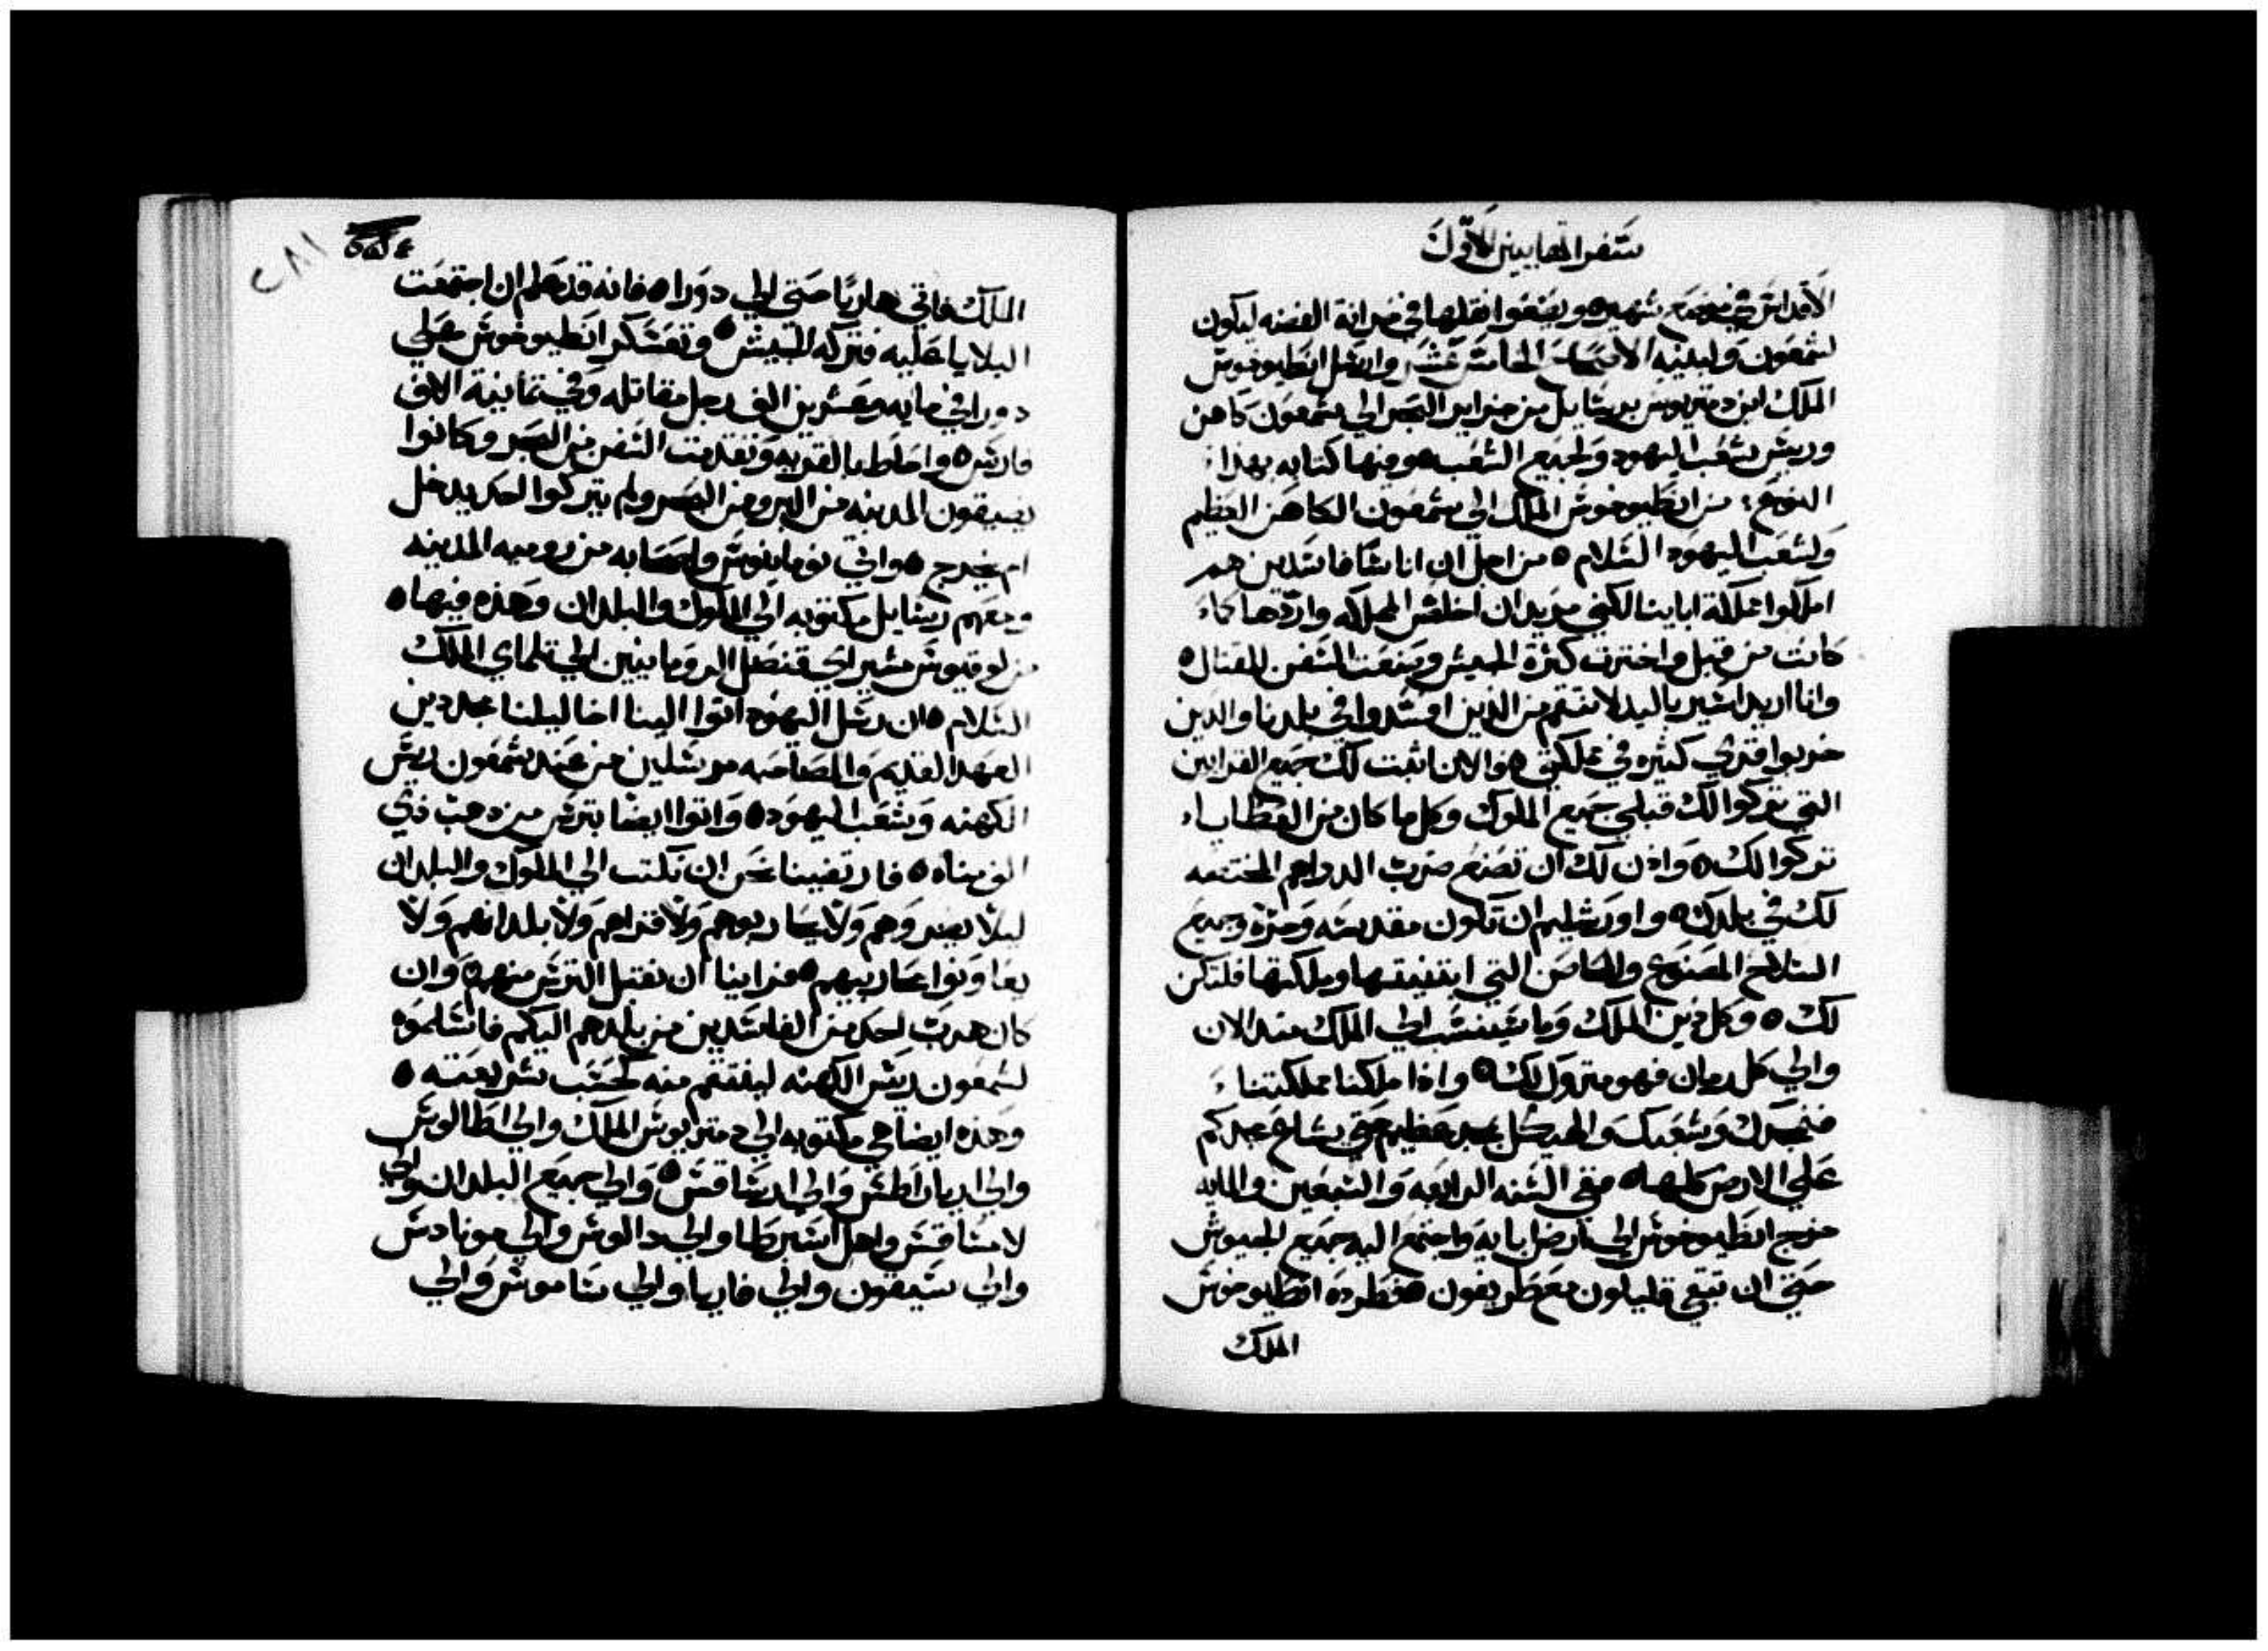 سفر المقابيين الاول
الاقداس في موضع شهير ه ويضعوا نقلها في خزانة الفضه ليكون
لشمعون ولبنيه الاصحاح الخامس عشر وارسل انطيوخوس
الملك ابن دمتريوس رسايل من جزاير البحر الي شمعون كاهن
وريس شعب اليهود ولجميع الشعب ه ومنها كتابه بهذا
النوع من انطيوخوس الملك الي شمعون الكاهن العظيم
ولشعب اليهود السلام ه من اجل ان اناسا فاسدين هم
املكوا مملكة اباينا لكني مريد ان اخلص المملكه واردها كما
كانت من قبل واخترت كثرة الجيش وصنعت السفن للقتال ه
وانا اريد اسير بالبلد لانتقم من الذين افسدوا في بلدنا والذين
خربوا قري كثيره في مملكتي ه والان اثبت لك جميع القرابين
التي تركوا لك قبلي جميع الملوك وكل ما كان من العطايا
تركوا لك ه واذن لك ان تصنع ضرب الدراهم المختصه
لك في بلدك ه واورشليم ان تكون مقدسه وحرة وجميع
السلاح المصنوع والمحاصن التي ابتنيتها وملكتها فلتكن
لك ه وكل دين الملك وما ينسب الي الملك منذ الان
والي كل زمان فهو متروك لك ه واذا ملكنا مملكتنا
فنمجدك وشعبك والهيكل بمجد عظيم حتي يشاع مجدكم
علي الارض كلها ه ففي السنه الرابعه والسبعين والمايه
خرج انطيوخوس الي ارض ابايه واجتمع اليه جميع الجيوش
حتي ان تبقي قليلون مع طريفون ه فطرده انطيوخوس
الملك
٢٨١
الملك فاتي هاربا حتي الي دورا ه فانه قد علم ان اجتمعت
البلايا عليه فتركه الجيش ه وتعسكر انطيوخوس علي
دورا في مايه وعشرين الف رجل مقاتله وفي ثمانية الاف
فارس ه واحاط بالقريه وتقدمت السفن من البحر وكانوا
يضيقون المدينه من البر ومن البحر ولم يتركوا احد يدخل
ام يخرج ه واتي نومانيوس واصحابه من روميه المدينه
ومعهم رسايل مكتوبه الي الملوك والبلدان وهذه فيها ه
من لوقيوس مشير اي قنصل الرومانيين الي تلماي الملك
السلام ه ان رسل اليهود اتوا الينا احبا لنا مجددين
العهد القديم والمصاحبه مرسلين من عند شمعون ريس
الكهنه وشعب اليهود ه واتوا ايضا بترس من ذهب ذي
الف مناه ه فارتضينا نحن ان نكتب الي الملوك والبلدان
ليلا يضروهم ولا يحاربوهم ولا قراهم ولا بلدانهم ولا
يعاونوا محاربيهم ه فراينا ان نقبل الترس منهم ه وان
كان هرب احد من الفاسدين من بلدهم اليكم فاسلموه
لشمعون ريس الكهنه لينتقم منه كحسب شريعته ه
وهذه ايضا هي مكتوبه الي دمتريوس الملك والي اطالوس
والي ارياراطس والي ارساقس ه والي جميع البلدان والي
لامساقس واهل اسبرطا والي دالوس والي مونادس
والي سيقون والي قاريا والي ساموس والي